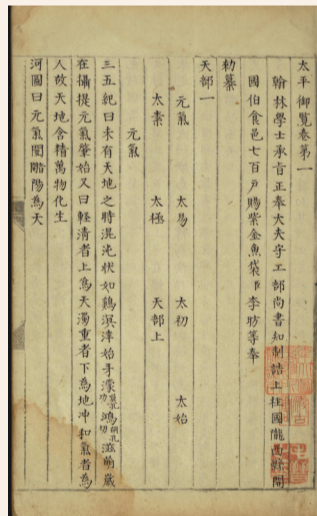 太平御覽卷第一
翰林學士承旨正奉大夫守工部尚書知制誥上柱國隴西縣開
國伯食邑七百戶賜紫金魚袋臣李昉等奉
勅纂
天部一
元氣 太易 太初 太始
太素 太極 天部上
元氣
三五紀曰未有天地之時混沌狀如鷄溟涬始牙濛鴻滋萌歲
在攝提元氣肇始又曰軽清者上為天濁重者下為地冲和氣者為
人故天地含精萬物化生
河圖曰元氣闓陽為天